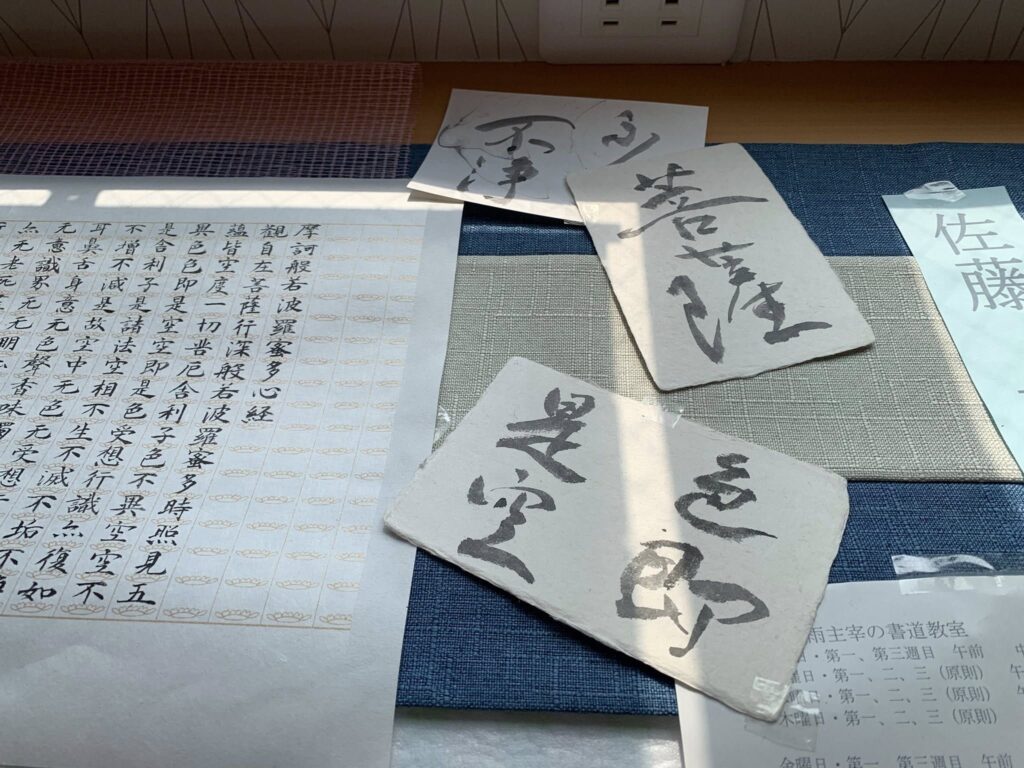 摩訶般若波羅蜜多心経
觀自在菩薩行深般若波羅蜜多時照見五
蘊皆空度一切苦厄舎利子色不異空空不
異色色即是空空即是色受想行識亦復如
是舎利子是諸法空相不生不滅不垢不
不増不減是故空中无色无受想
耳鼻舌身意无色聲香味
无意識界无无明
无老死
不浄
菩薩
色即
是空
佐藤
雨主宰の書道教室
日・第一、第三週目 午前
曜日・第一、二、三（原則）
曜日・第一、二、三（原則）
木曜日・第一、二、三（原則）
金曜日・第一、第三週目 午前